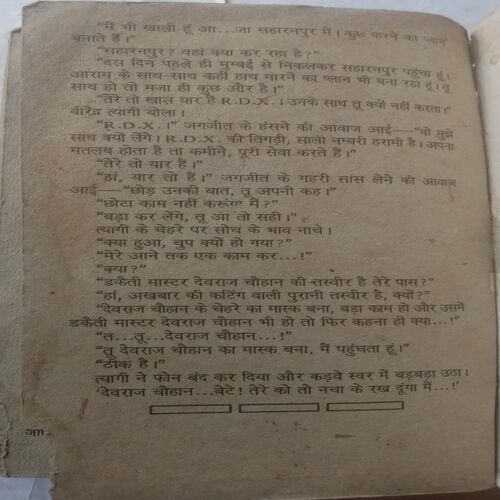 “मैं भी खाली हूं आ...जा सहारनपुर में। कुछ करने का प्लान
बनाते हैं।”
“सहारनपुर? वहां क्या कर रहा है?”
“दस दिन पहले ही मुम्बई से निकलकर सहारनपुर पहुंचा हूं।
आराम के साथ-साथ कहीं हाथ मारने का प्लान भी बना रहा हूं। तू
साथ हो तो मजा ही कुछ और है।”
“तेरे तो खास यार हैं R.D.X.। उनके साथ तू क्यों नहीं करता।”
वीरेंद्र त्यागी बोला।
“R.D.X.।” जगजीत के हंसने की आवाज आई—“वो मुझे
साथ क्यों लेंगे। R.D.X. की तिगड़ी, सालो नम्बरी हरामी है। अपना
मतलब होता है तो कमीने, पूरी सेवा करते हैं।”
“तेरे तो यार हैं।”
“हां, यार तो हैं।” जगजीत के गहरी सांस लेने की आवाज
आई—“छोड़ उनकी बात, तू अपनी कह।”
“छोटा काम नहीं करूंगा मैं?”
“बड़ा कर लेंगे, तू आ तो सही।”
त्यागी के चेहरे पर सोच के भाव नाचे।
“क्या हुआ, चुप क्यों हो गया?”
“मेरे आने तक एक काम कर...!”
“क्या?”
“डकैती मास्टर देवराज चौहान की तस्वीर है तेरे पास?”
“हां, अखबार की कटिंग वाली पुरानी तस्वीर है, क्यों?”
“देवराज चौहान के चेहरे का मास्क बना, बड़ा काम हो और उसमें
डकैती मास्टर देवराज चौहान भी हो तो फिर कहना ही क्या...!”
“त...तू...देवराज चौहान...!”
“तू देवराज चौहान का मास्क बना, मैं पहुंचता हूं।”
“ठीक है।”
त्यागी ने फोन बंद कर दिया और कड़वे स्वर में बड़बड़ा उठा।
‘देवराज चौहान...बेटे! तेरे को तो नचा के रख दूंगा मैं...!’